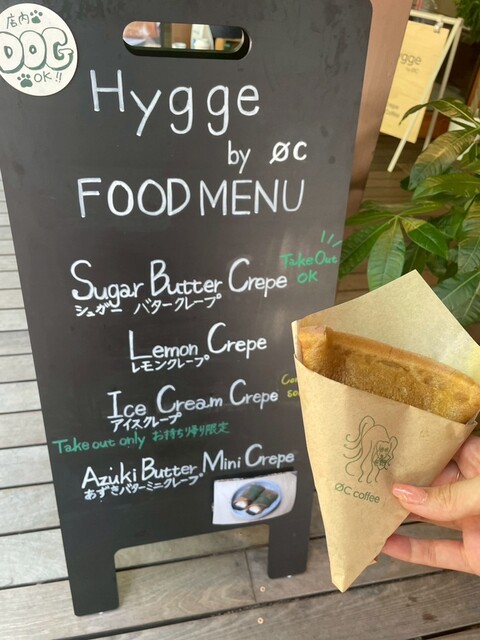 店内
DOG
OK!!
Hygge
by ØC
FOOD MENU
Take Out
OK
Sugar Butter Crepe
シュガー バタークレープ
Lemon Crepe
レモンクレープ
Ice Cream Crepe
アイスクレープ
Take out only お持ち帰り限定
Azuki Butter Mini Crepe
あずきバターミニクレープ
ØC coffee